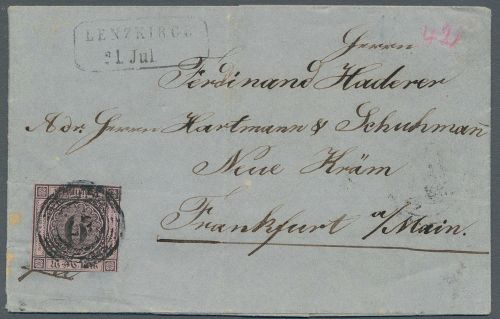 LENZKIRCH
21 Jul
421
Herrn
Ferdinand Haderer
Adr: Herrn Hartmann & Schuhmañ
Neue Kräm
Frankfurt a/Main.